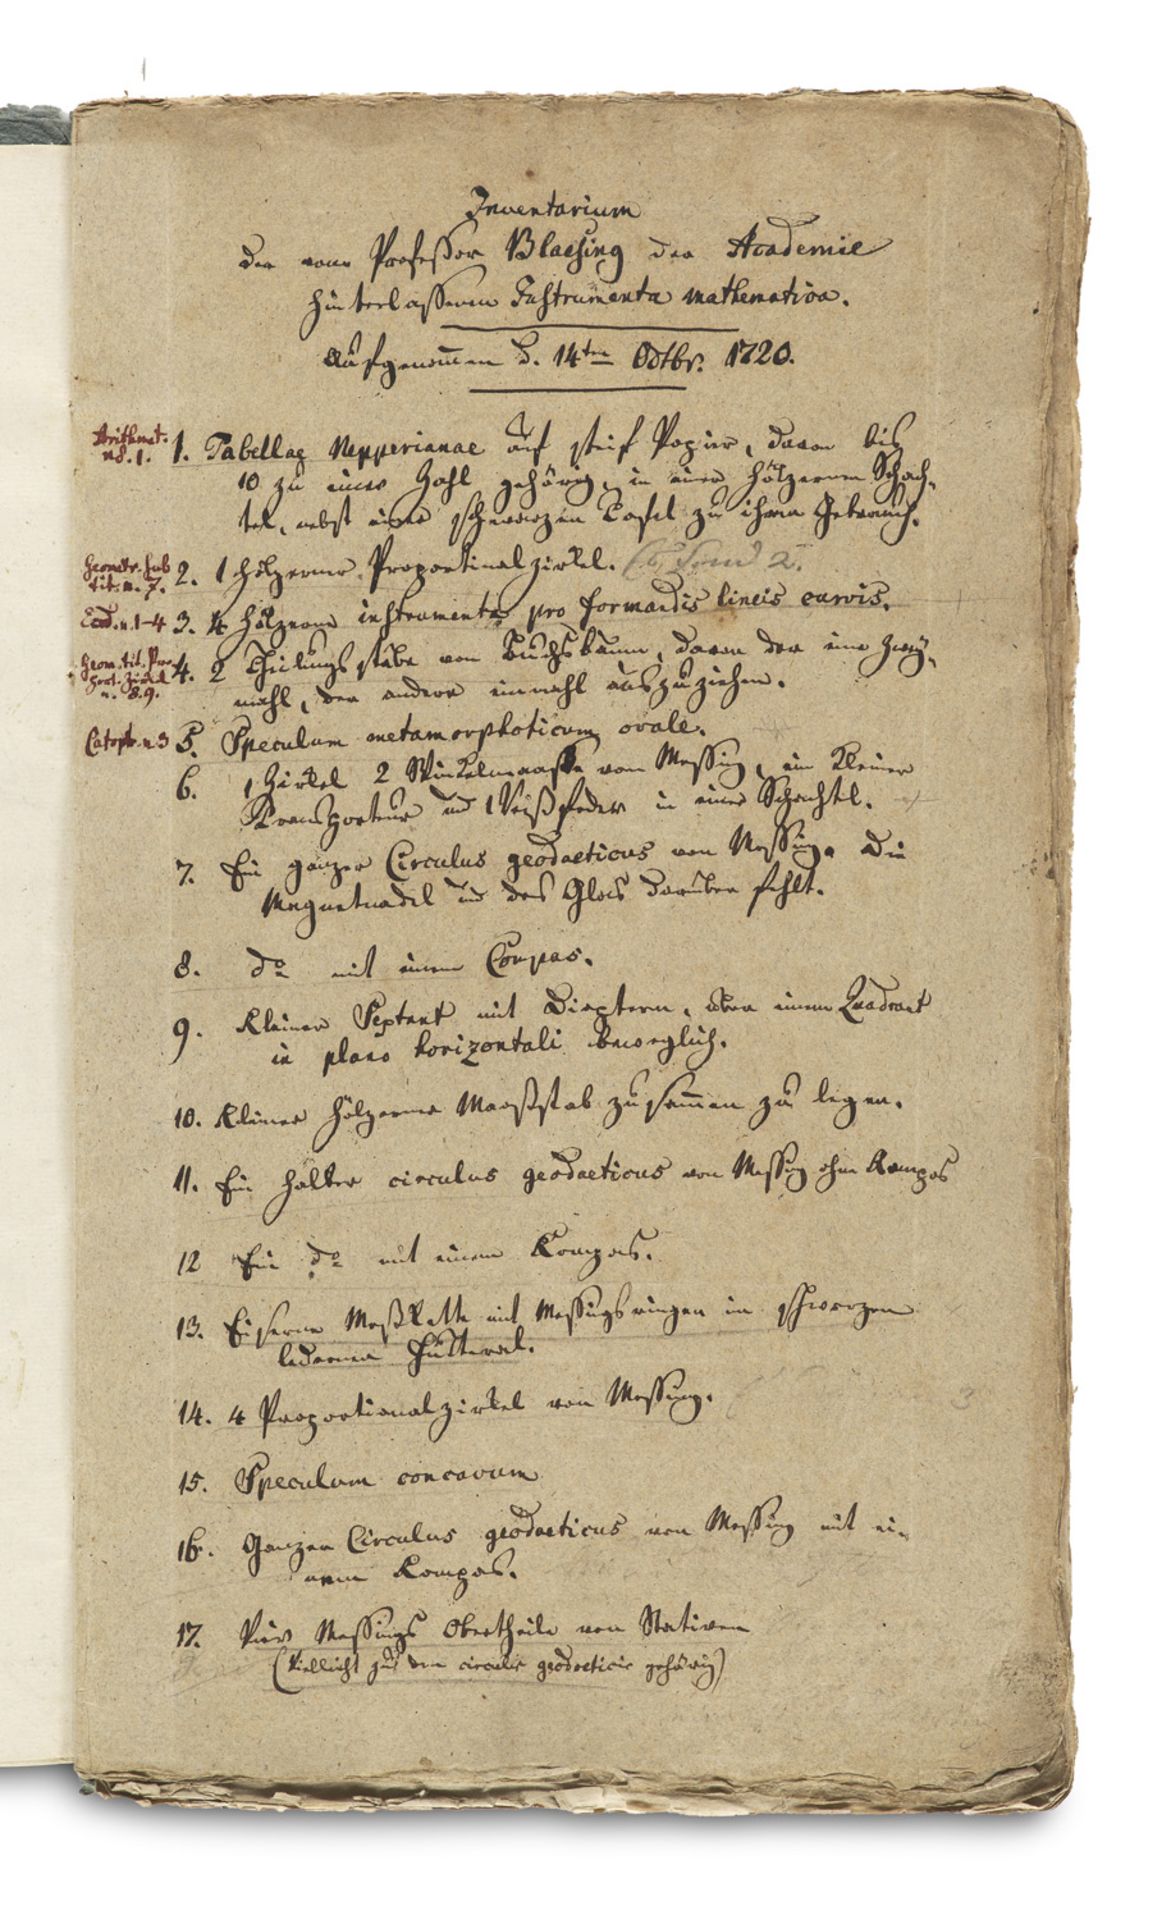 Inventarium
der vom Professor Blaesing der Academie
hinterlassenen Instrumenta mathematica.
Aufgenommen d. 14ten Octbr. 1720.
Arithmet.
n8.1.
1. Tabellae Nepperianae auf steif Papier, davon
10 zu einer Zahl gehörig, in einer hölzernen Schach-
tel, nebst einer schwarzen Tafel zu ihrem Gebrauch.
Geometr. sub
tit. n. 7.
2. 1 hölzerner Proportionalzirkel. sind 2.
Ead. n. 1-4
3. 4 hölzerne instrumenta pro formandis lineis curvis.
Geom. tit. Pro-
port. Zirkel
n. 8.9.
4. 2 Theilungsstäbe von Buchsbaum, davon der eine zwey-
mahl, der andere einmahl auszuziehen.
Catoptr. n 3
5. Speculum metamorphoticum ovale.
6. 1 Zirkel 2 Winkelmaasse von Messing, ein kleiner
Transporteur und 1 Reißfeder in einer Schachtel.
7. Ein ganzer Circulus geodaeticus von Messing. Die
Magnetnadel und das Glas darüber fehlt.
8. do mit einem Compas.
9. Kleiner Sextant mit Dioptern, über einem Quadrant
in plano horizontali beweglich.
10. Kleiner hölzerner Maaßstab zusammen zu legen.
11. Ein halber circulus geodaeticus von Messing ohne Kompas
12 Ein do mit einem Kompas.
13. Eiserne Meßkette mit Messingsringen in schwarzen
ledernen Futteral.
14. 4 Proportionalzirkel von Messing.
3
15. Speculum concavum
16. Ganzer Circulus geodaeticus von Messing mit ei-
nem Kompas.
17. Vier Messings Obertheile von Stativen
(Vielleicht zu den circulis geodaeticis gehörig)